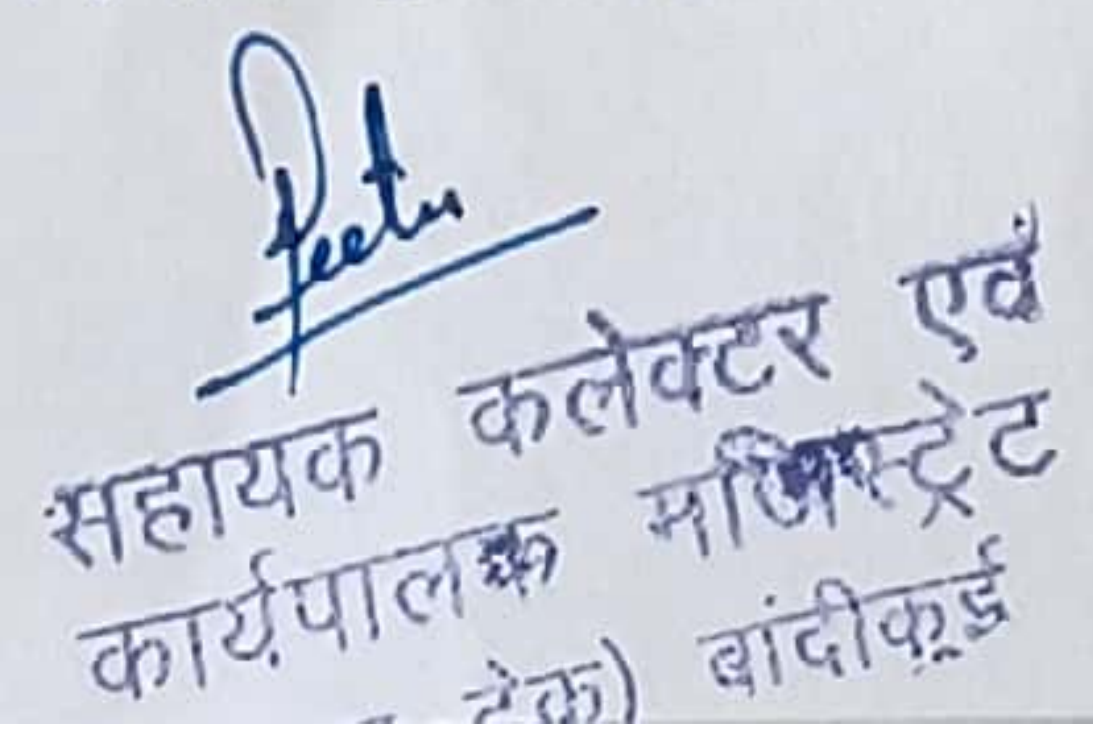 Peetu
सहायक कलेक्टर एवं
कार्यपालक मजिस्ट्रेट
बांदीकुई